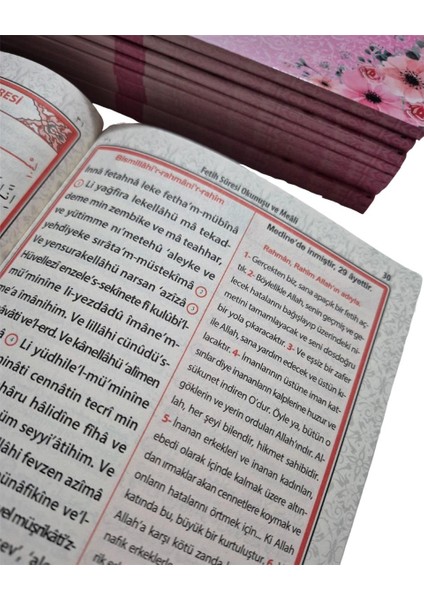 RESİ
Fetih Sûresi Okunuşu ve Meâli
30
Bismillâhi'r-rahmâni'r-rahîm
innâ fetahnâ leke fetha'm-mübînâ
① Li yağfira lekellâhü mâ tekad-
deme min zembike ve mâ teahhar,
ve yütimme ni'metehû 'aleyke ve
yehdiyeke sırâta'm-müstekîmâ
Ve yensurakellâhü narsan 'azîzâ ③
Hüvellezî enzele's-sekînete fî kulûbi'l-
mü'minîne li-yezdâdû îmâne'm-
a îmânihim. Ve lillâhi cünûdü's-
avâti ve'l-erd. Ve kânellâhü 'alîmen
① Li yüdhile'l-mü'minîne
minâti cennâtin tecrî min
hâru hâlidîne fîhâ ve
üm seyyi'âtihim. Ve
llâhi fevzen azîmâ
ünâfikîne ve'l-
vel müşrikâti'z-
ev', 'aley
Medine'de inmiştir, 29 âyettir.
Rahmân, Rahîm Allah'ın adıyla.
1- Gerçekten biz, sana apaçık bir fetih aç-
tık. 2- Böylelikle Allah, senin geçmiş ve ge-
lecek hatalarını bağışlayıp üzerindeki ni-
metini tamamlayacak ve seni dosdoğru
bir yola çıkaracaktır. 3- Ve eşsiz bir zafer
ile Allah, sana yardım edecek ve üstün kı-
lacaktır. 4- İmanlarının üstüne iman kat-
sınlar diye inananların kalplerine huzur ve
sükunet indiren O'dur. Öyle ya, bütün o
göklerin ve yerin orduları Allah'ındır. Al-
lah, her şeyi bilendir, hikmet sahibidir.
5- İnanan erkekleri ve inanan kadınları,
ebedi olarak içinde kalmak üzere altın-
dan ırmaklar akan cennetlere koymak ve
onların hatalarını örtmek için... Ki Allah
katında bu, büyük bir kurtuluştur.
Allah'a karşı kötü zanda
nafık erkeklerle